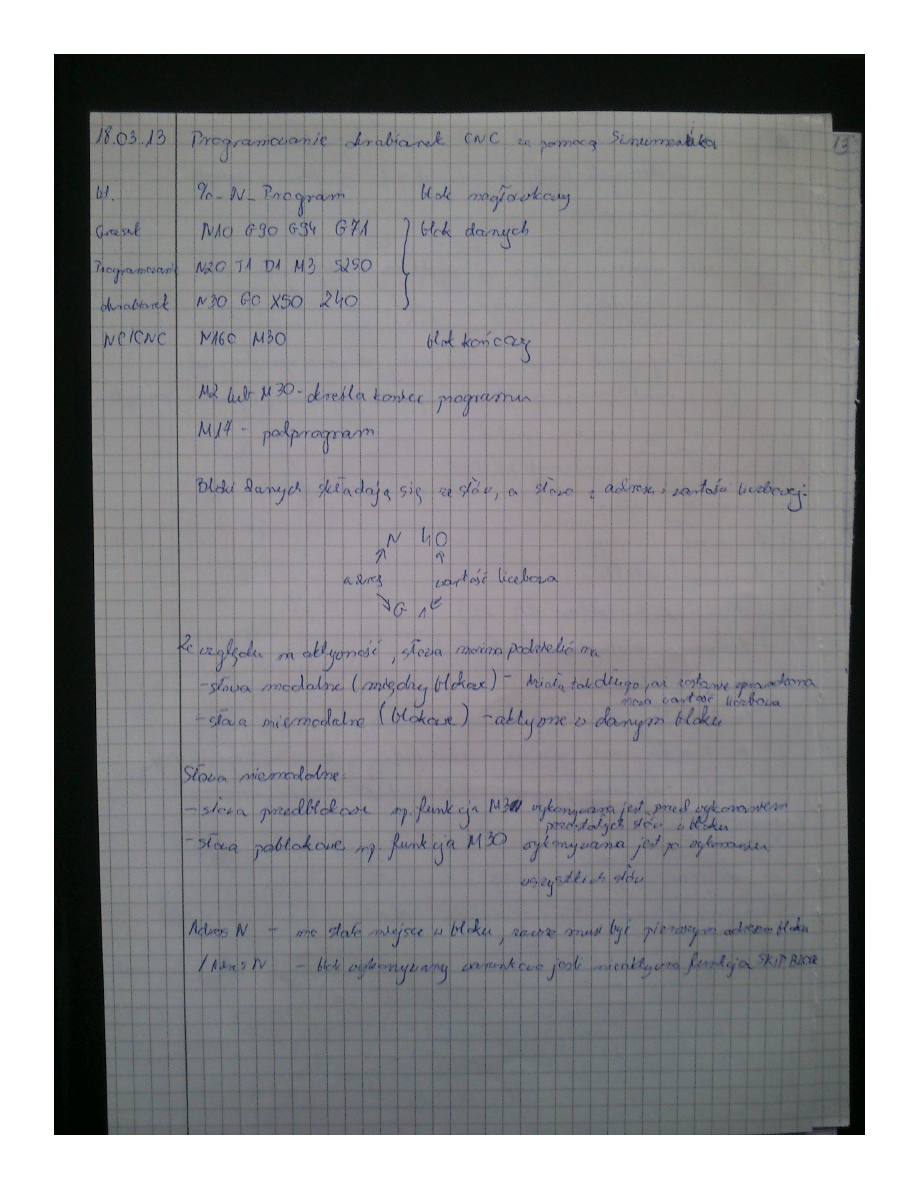 18.03.13 Programowanie obrabiarek CNC za pomocą Sinumerika
13
lit. %_N_Program blok nagłówkowy
Grzesik N10 G90 G94 G71 blok danych
Programowanie N20 T1 D1 M3 S250
obrabiarek N30 G0 X50 Z40
NC/CNC N160 M30 blok końcowy
M2 lub M30 - określa koniec programu
M17 - podprogram
Bloki danych składają się ze słów, a słowo z adresu i wartości liczbowej.
N 40
adres wartość liczbowa
G 1
Ze względu na aktywność, słowa można podzielić na
- słowa modalne (międzyblokowe) - działa tak długo, aż zostanie wprowadzona
nowa wartość liczbowa
- słowa niemodalne (blokowe) - aktywne w danym bloku
Słowa niemodalne
- słowa przedblokowe np. funkcja M3 wykonywana jest przed wykonaniem
pozostałych słów w bloku
- słowa poblokowe np. funkcja M30 wykonywana jest po wykonaniu
wszystkich słów
Adres N - ma stałe miejsce w bloku, zawsze musi być pierwszym adresem bloku
/Adres N - blok wykonywany warunkowo jeśli nieaktywna funkcja SKIP BLOCK